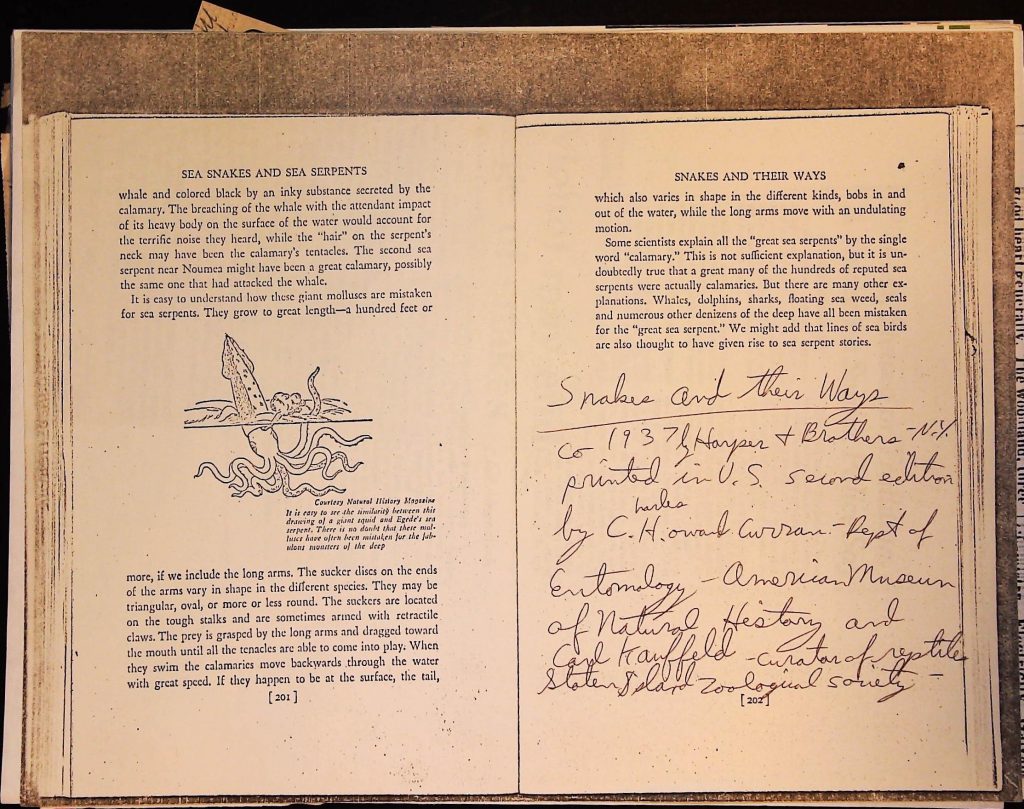 SEA SNAKES AND SEA SERPENTS
whale and colored black by an inky substance secreted by the
calamary. The breaching of the whale with the attendant impact
of its heavy body on the surface of the water would account for
the terrific noise they heard, while the "hair" on the serpent's
neck may have been the calamary's tentacles. The second sea
serpent near Noumea might have been a great calamary, possibly
the same one that had attacked the whale.
It is easy to understand how these giant molluscs are mistaken
for sea serpents. They grow to great length—a hundred feet or
Courtesy Natural History Magazine
It is easy to see the similarity between this
drawing of a giant squid and Egede's sea
serpent. There is no doubt that these mol-
luscs have often been mistaken for the fab-
ulous monsters of the deep
more, if we include the long arms. The sucker discs on the ends
of the arms vary in shape in the different species. They may be
triangular, oval, or more or less round. The suckers are located
on the tough stalks and are sometimes armed with retractile
claws. The prey is grasped by the long arms and dragged toward
the mouth until all the tenacles are able to come into play. When
they swim the calamaries move backwards through the water
with great speed. If they happen to be at the surface, the tail,
[ 201 ]
SNAKES AND THEIR WAYS
which also varies in shape in the different kinds, bobs in and
out of the water, while the long arms move with an undulating
motion.
Some scientists explain all the "great sea serpents" by the single
word "calamary." This is not sufficient explanation, but it is un-
doubtedly true that a great many of the hundreds of reputed sea
serpents were actually calamaries. But there are many other ex-
planations. Whales, dolphins, sharks, floating sea weed, seals
and numerous other denizens of the deep have all been mistaken
for the "great sea serpent." We might add that lines of sea birds
are also thought to have given rise to sea serpent stories.
Snakes and their Ways
co 1937 by Harper + Brothers - N.Y.
printed in U.S. second edition
harles
by C. Howard Curran - Dept of
Entomology - American Museum
of Natural History and
Carl Kauffeld - curator of reptiles
Staten Island Zoological society -
[ 202 ]